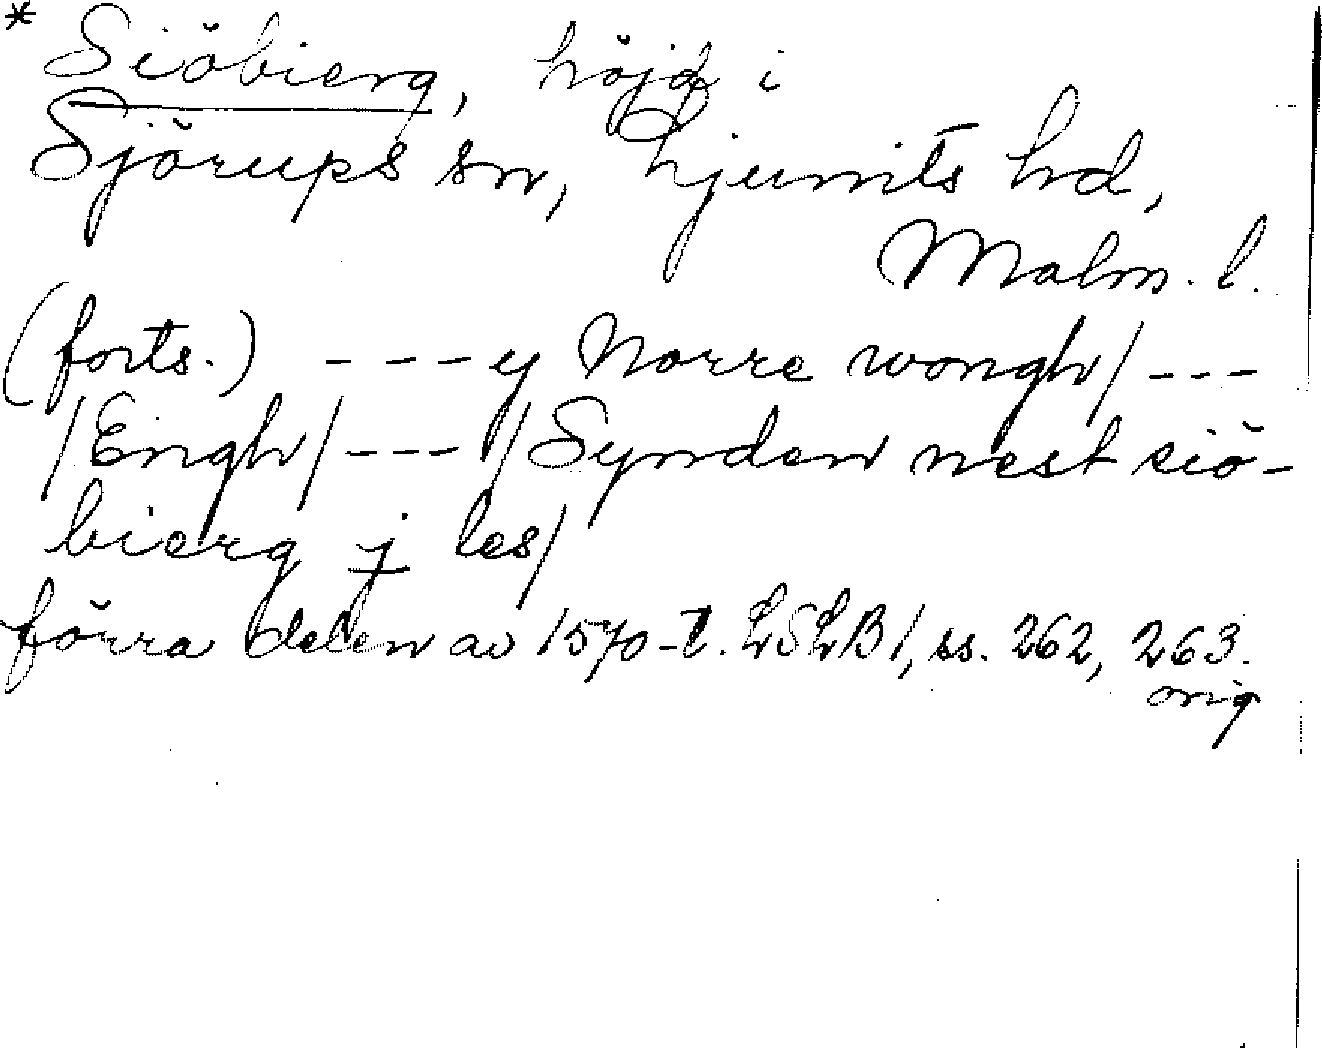 * Siöbierg, höjd i
Sjörups sn, Ljunits hd,
Malm. l.
(forts.) - - - y Norre wongh/ - - -
/Engh/ - - - /Synden nest siö-
bierg j les/
förra delen av 1570-t. LSLB 1, ss. 262, 263.
orig